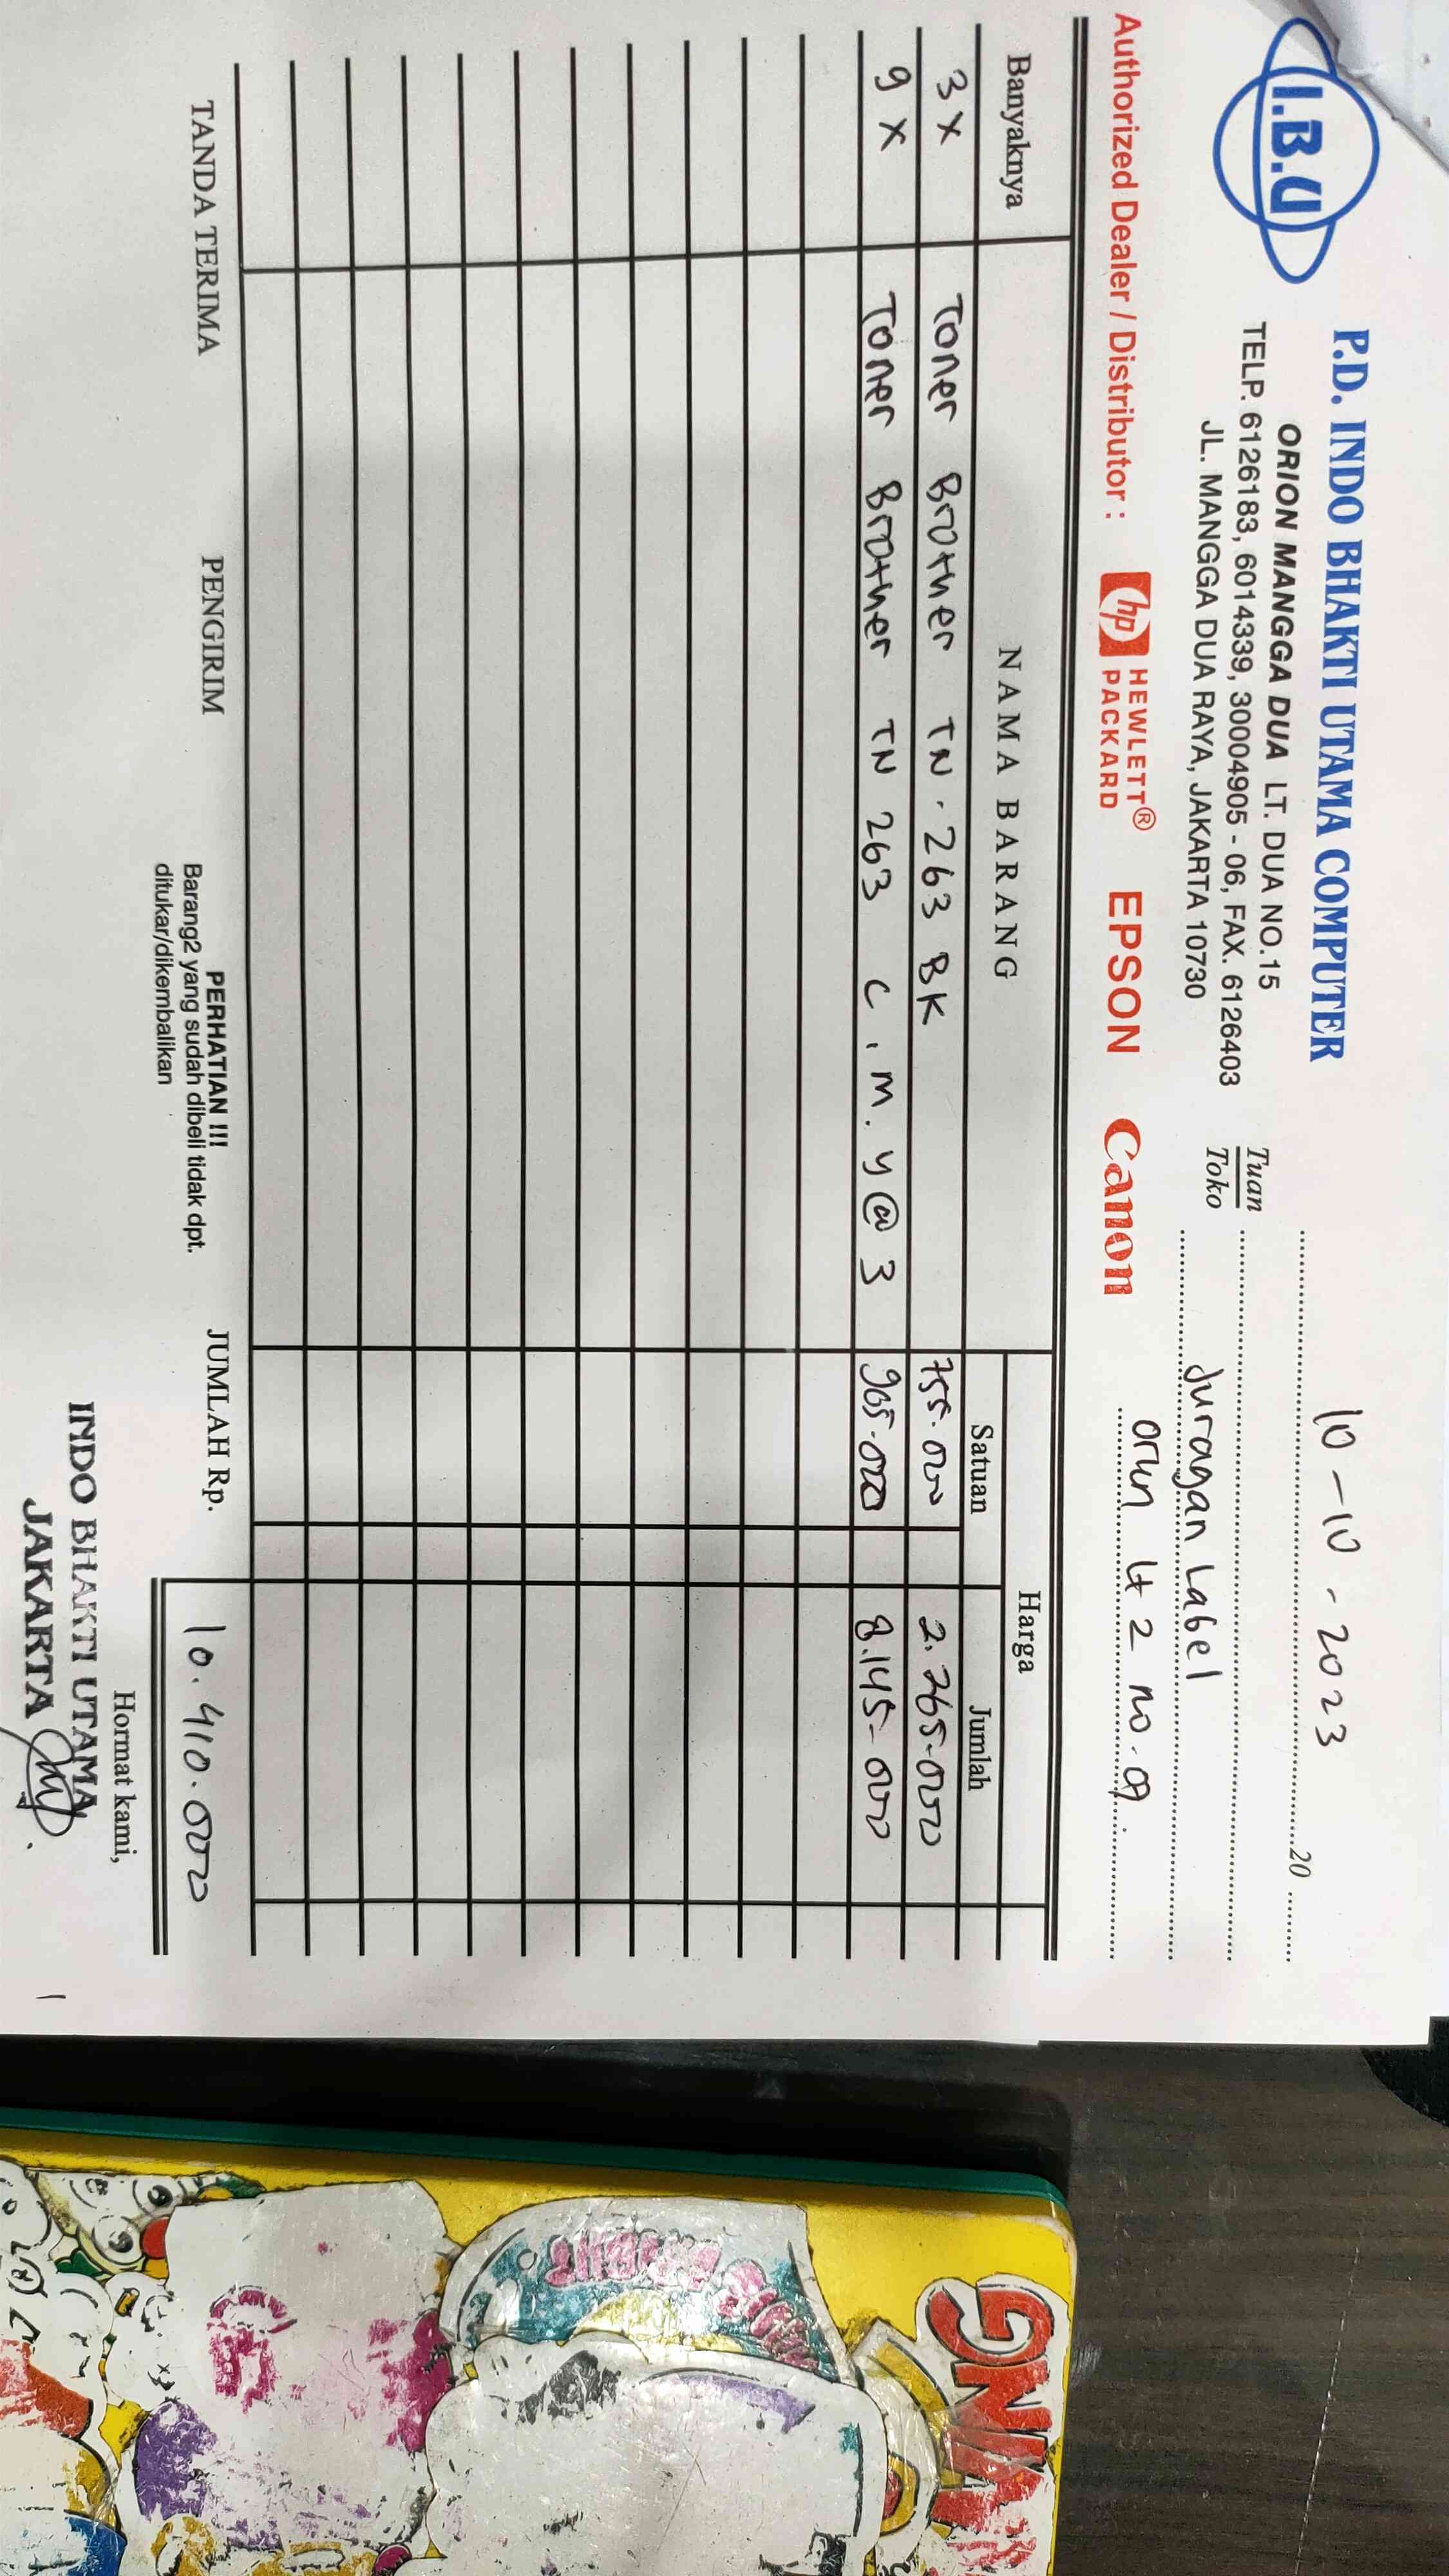 I.B.U
P.D. INDO BHAKTI UTAMA COMPUTER
ORION MANGGA DUA LT. DUA NO.15
TELP. 6126183, 6014339, 30004905 - 06, FAX. 6126403
JL. MANGGA DUA RAYA, JAKARTA 10730
10-10-2023
20
Tuan
Toko
Juragan Label
orion lt 2 no. 09.
Authorized Dealer / Distributor : hp HEWLETT® PACKARD EPSON Canon
Banyaknya NAMA BARANG Harga
Satuan Jumlah
3 x Toner Brother TN. 263 BK 755.000 2.265.000
9 x Toner Brother TN 263 C. M. Y @ 3 905.000 8.145.000
TANDA TERIMA PENGIRIM JUMLAH Rp. 10.410.000
PERHATIAN !!!
Barang2 yang sudah dibeli tidak dpt.
ditukar/dikembalikan
Hormat kami,
INDO BHAKTI UTAMA
JAKARTA